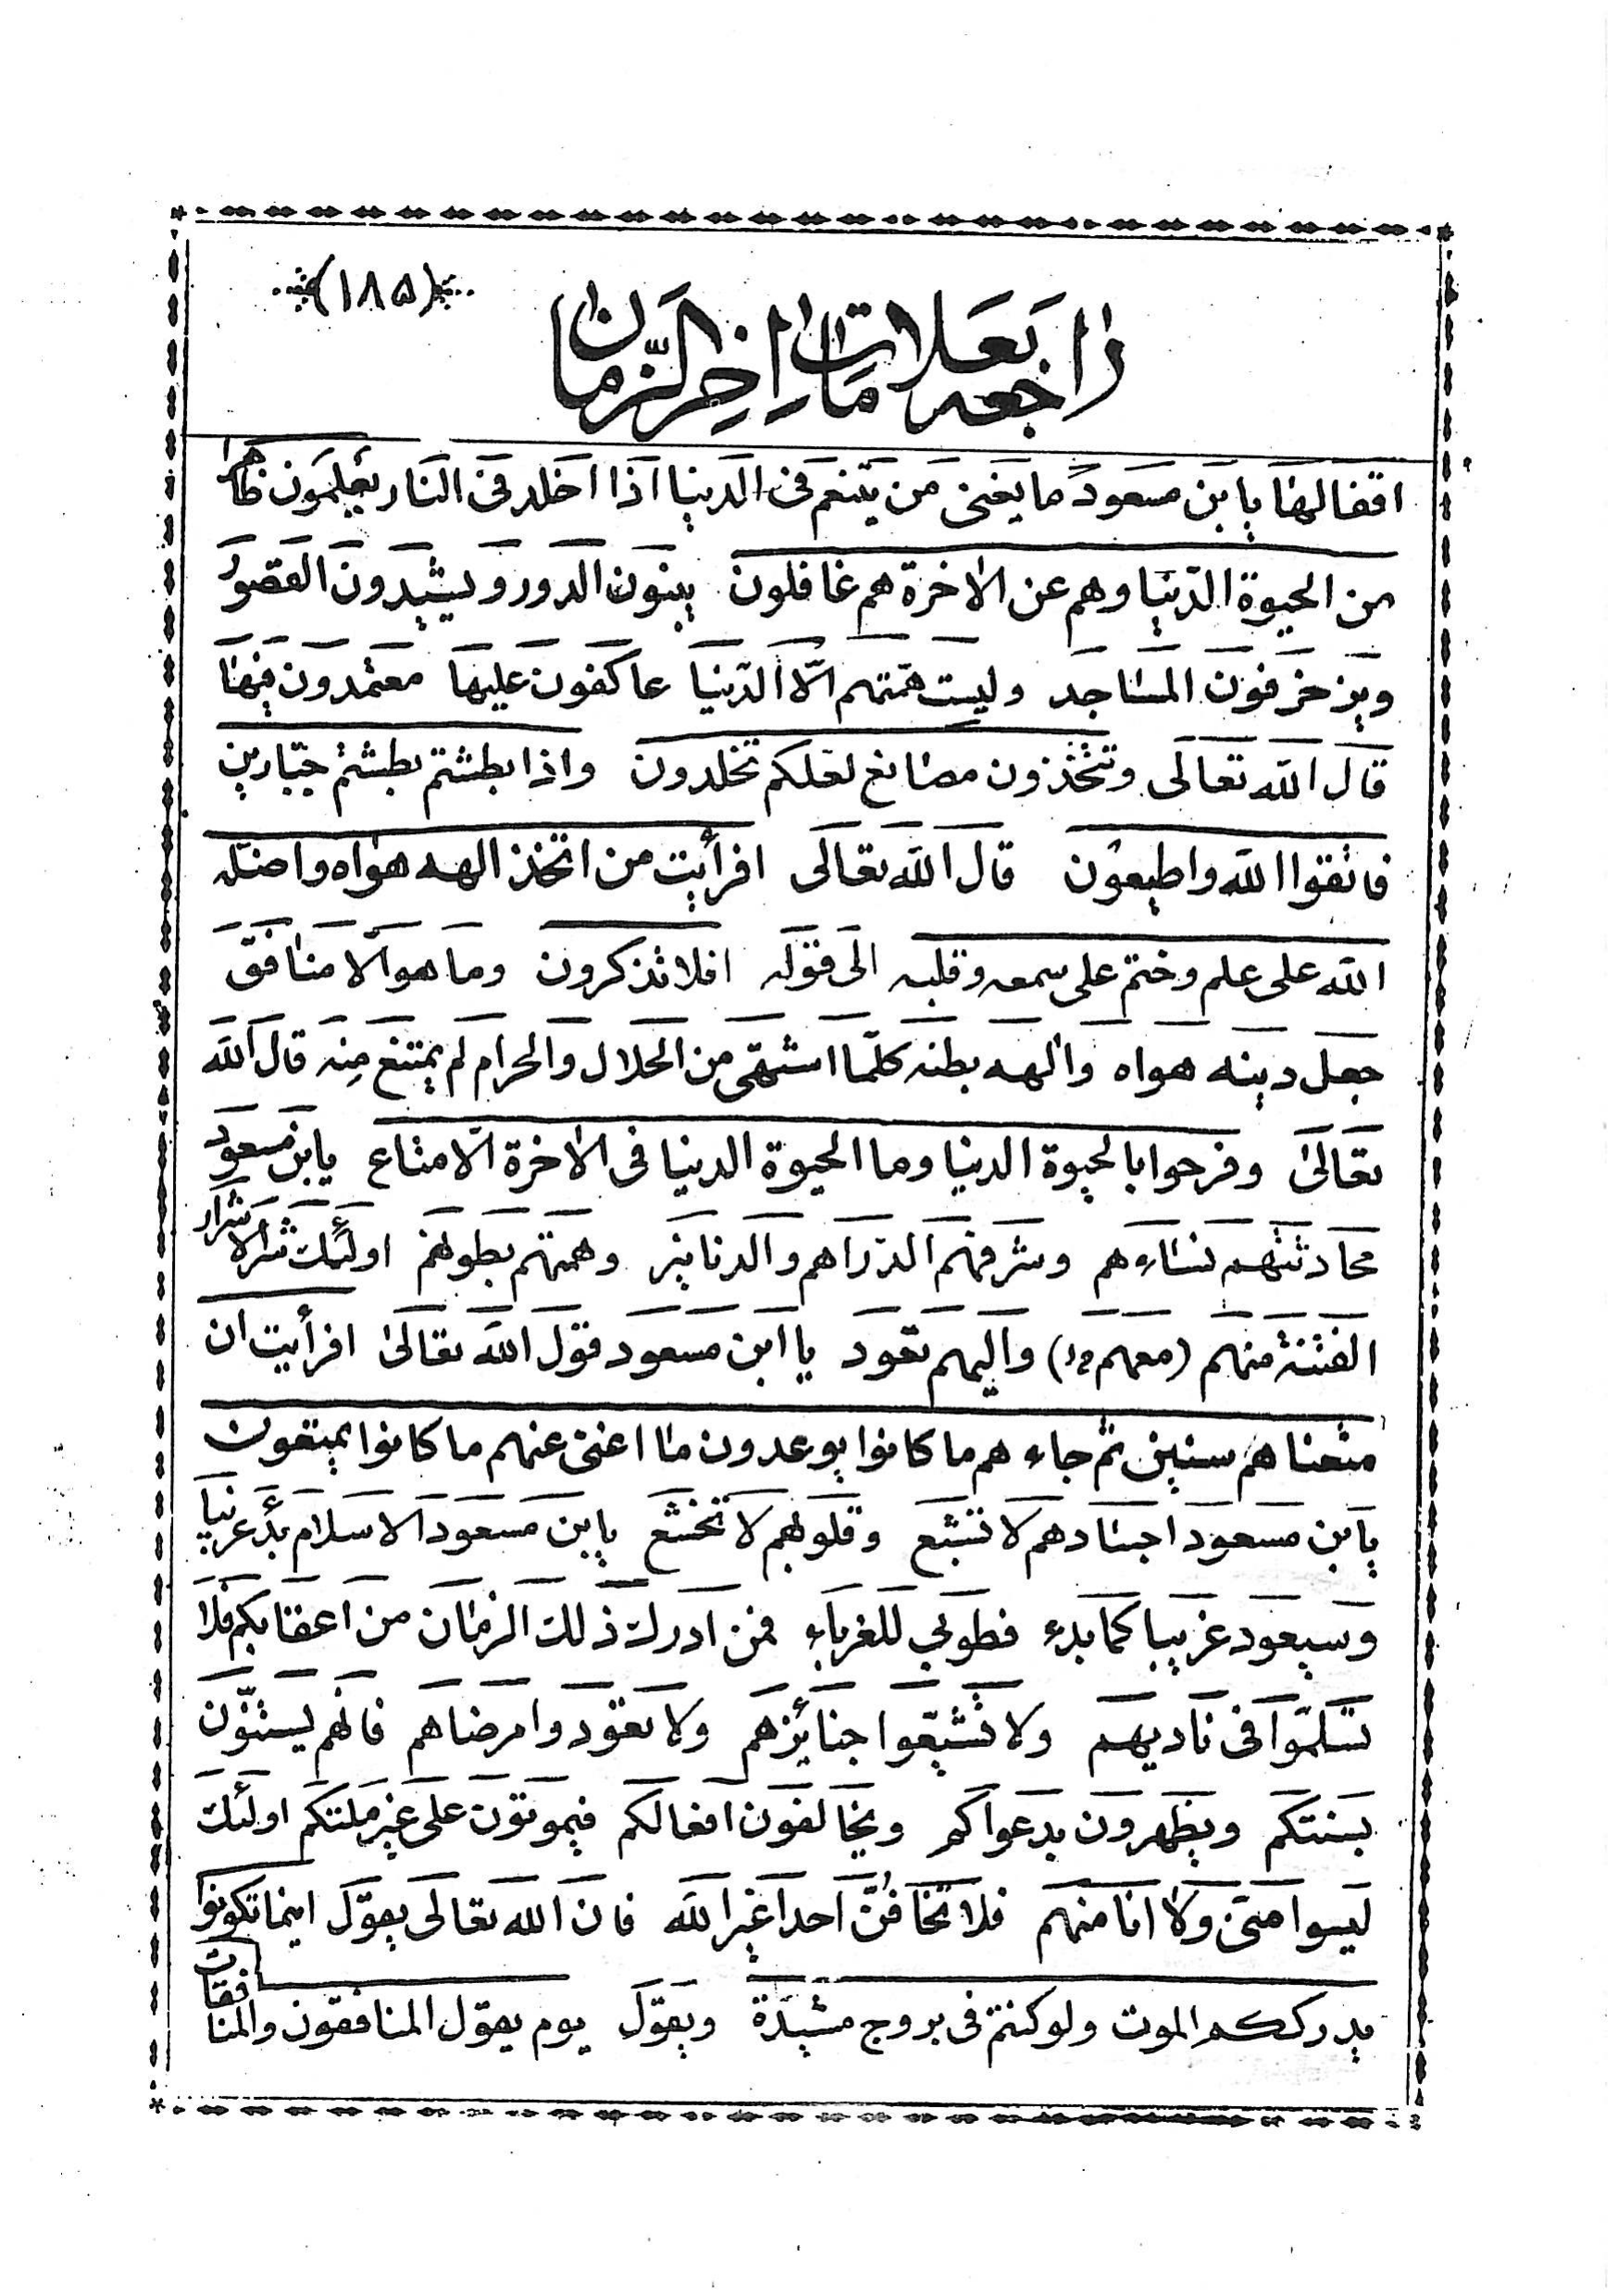 (۱۸۵)
راجعه بعلامات اخر الزمان
اقفالها یا بن مسعود ما یغنی من یتنعم فی الدنیا اذا اخلد فی النار یعلمون ظاهرا
من الحیوة الدّنیا وهم عن الاخرة هم غافلون یبنون الدور ویشیدون القصور
ویزخرفون المساجد ولیست همّتهم الّا الدّنیا عاکفون علیها معتمدون فیها
قال الله تعالی وتتّخذون مصانع لعلکم تخلدون واذا بطشتم بطشتم جبّارین
فاتقوا الله واطیعون قال الله تعالی افرأیت من اتخذ الهه هواه واضلّه
الله علی علم وختم علی سمعه وقلبه الی قوله افلا تذکرون وما هو الّا منافق
جعل دینه هواه والهه بطنه کلّما اشتهی من الحلال والحرام لم یمتنع منه قال الله
تعالی وفرحوا بالحیوة الدنیا وما الحیوة الدنیا فی الاخرة الّا متاع یابن مسعود
محادثتهم نساءهم وشرفهم الدّراهم والدنانیر وهمتهم بطونهم اولئک شر الاشرار
الفتنة منهم (معهم) والیهم تعود یا ابن مسعود قول الله تعالی افرأیت ان
متعناهم سنین ثم جاء هم ما کانوا یوعدون ما اغنی عنهم ما کانوا یمتعون
یابن مسعود اجسادهم لا تشبع وقلوبهم لا تخشع یابن مسعود الاسلام بدء غریبا
وسیعود غریبا کما بدء فطوبی للغرباء فمن ادرک ذلک الزمان من اعقابکم فلا
تسلّموا فی نادیهم ولا تشیّعوا جنایزهم ولا تعودوا مرضاهم فانهم یستنّون
بسنتکم ویظهرون بدعواکم ویخالفون افعالکم فیموتون علی غیر ملتکم اولئک
لیسوا منّی ولا انا منهم فلا تخافنّ احدا غیر الله فان الله تعالی یقول اینما تکونوا
یدرککم الموت ولو کنتم فی بروج مشیّدة ویقول یوم یقول المنافقون والمنافقات